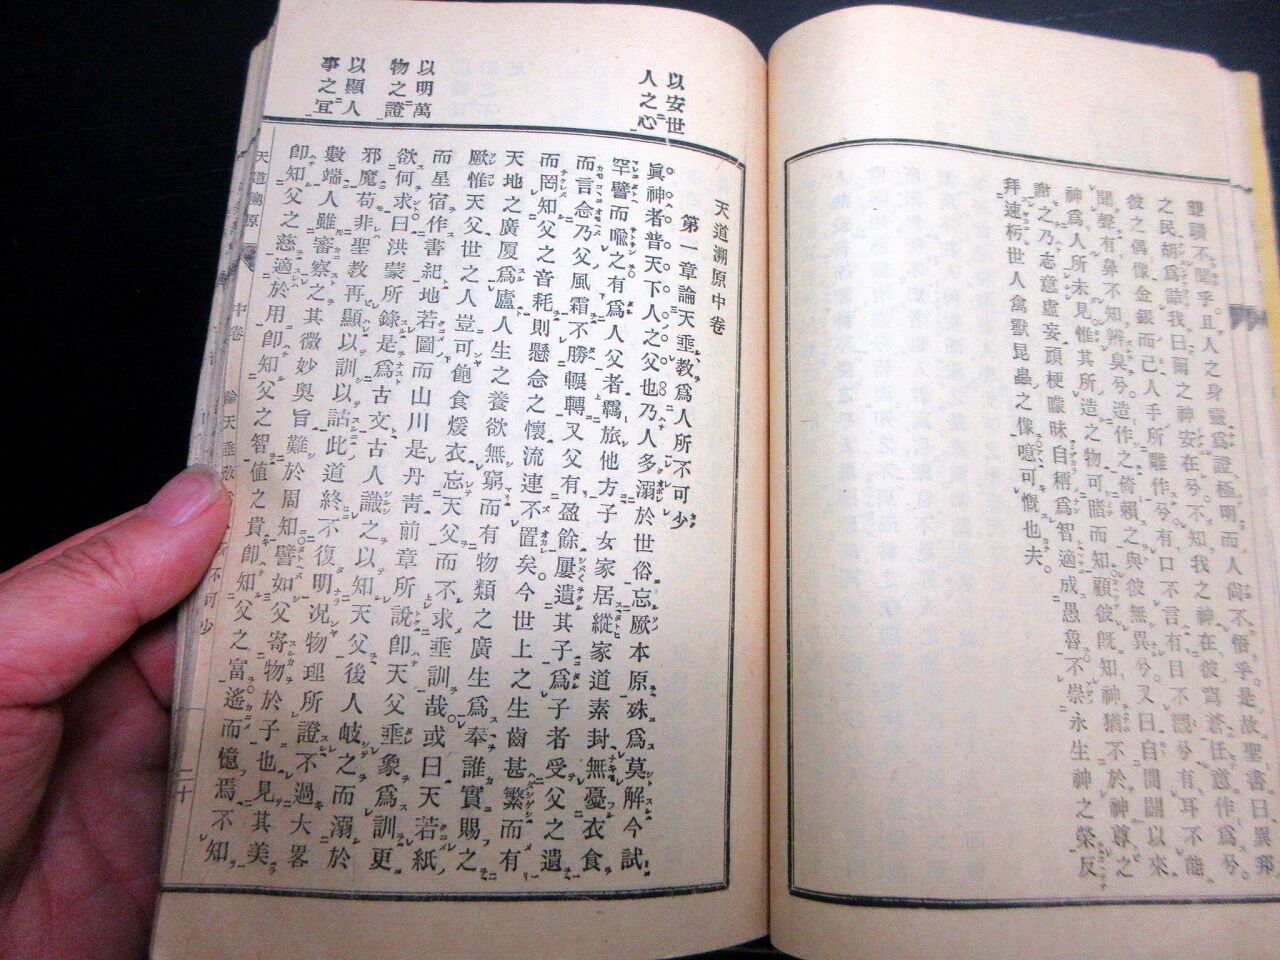 聾聵不聞乎且人之身靈爲證極明而人尙不悟乎是故聖書曰異邦
之民胡爲詰我曰爾之神安在兮不知我之神在彼穹蒼任意作爲兮
彼之偶像金銀而已人手所雕作兮有口不言有目不覩兮有耳不能
聞聲有鼻不知辨臭兮造作之倚賴之與彼無異兮又曰自開闢以來
神爲人所未見惟其所造之物可睹而知顧彼旣知神猶不於神尊之
謝之乃志意虛妄頑梗矇昧自稱爲智適成愚魯不崇永生神之榮反
拜速朽世人禽獸昆蟲之像噫可慨也夫
以安世
人之心
以明萬
物之證
以顯人
事之宜
天道溯原中卷
第一章論天垂教爲人所不可少
眞神者普天下人之父也乃人多溺於世俗忘厥本原殊爲莫解今試
罕譬而喩之有爲人父者羈旅他方子女家居縱家道素封無憂衣食
而言念乃父風霜不勝輾轉又父有盈餘屢遺其子爲子者受父之遺
而罔知父之音耗則懸念之懷流連不置矣今世上之生齒甚繁而有
天地之廣厦爲廬人生之養欲無窮而有物類之廣生爲奉誰實賜之
厥惟天父世之人豈可飽食煖衣忘天父而不求垂訓哉或曰天若紙
而星宿作書紀地若圖而山川是丹靑前章所說卽天父垂象爲訓更
欲何求曰洪蒙所錄是爲古文古人識之以知天父後人岐之而溺於
邪魔苟非聖教再顯以訓以詁此道終不復明況物理所證不過大畧
數端人雖審察之其微妙奧旨難於周知譬如父寄物於子也見其美
卽知父之慈適於用卽知父之智值之貴卽知父之富遙而憶焉不知
天道溯原
中卷
論天垂教
不可少
二十